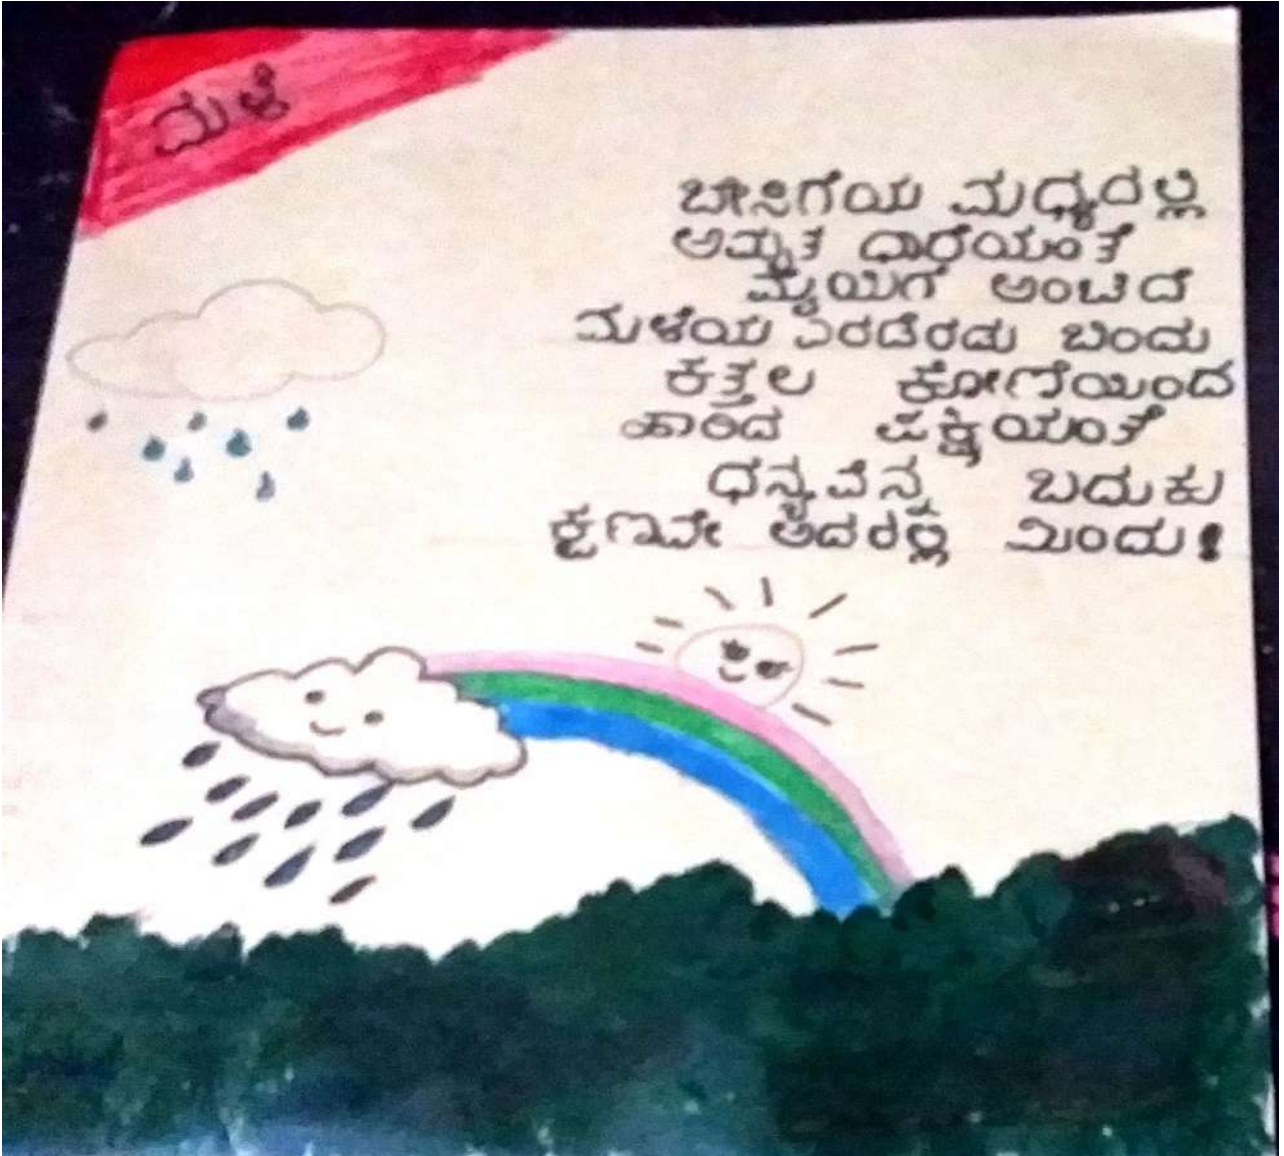 ಮಳೆ
ಬೇಸಿಗೆಯ ಮಧ್ಯದಲ್ಲಿ
ಅಮೃತ ಧಾರೆಯಂತೆ
ಮೈಯಿಗೆ ಅಂಟಿದೆ
ಮಳೆಯ ಎರಡೆರಡು ಬಿಂದು
ಕತ್ತಲ ಕೋಣೆಯಿಂದ
ಹಾರಿದ ಪಕ್ಷಿಯಂತೆ
ಧನ್ಯವೆನ್ನ ಬದುಕು
ಕ್ಷಣವೇ ಅದರಲ್ಲಿ ಮಿಂದು!